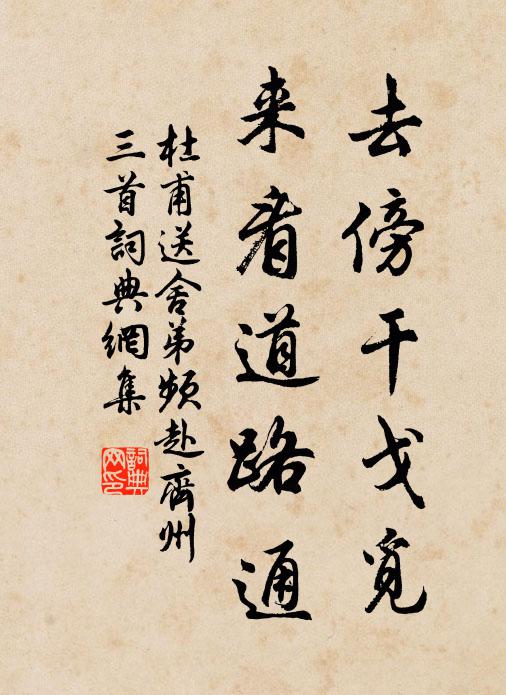 去傍干戈覓
来看道路通
杜甫送舍弟频赴齊州
三首詞典網集
詞典
网印